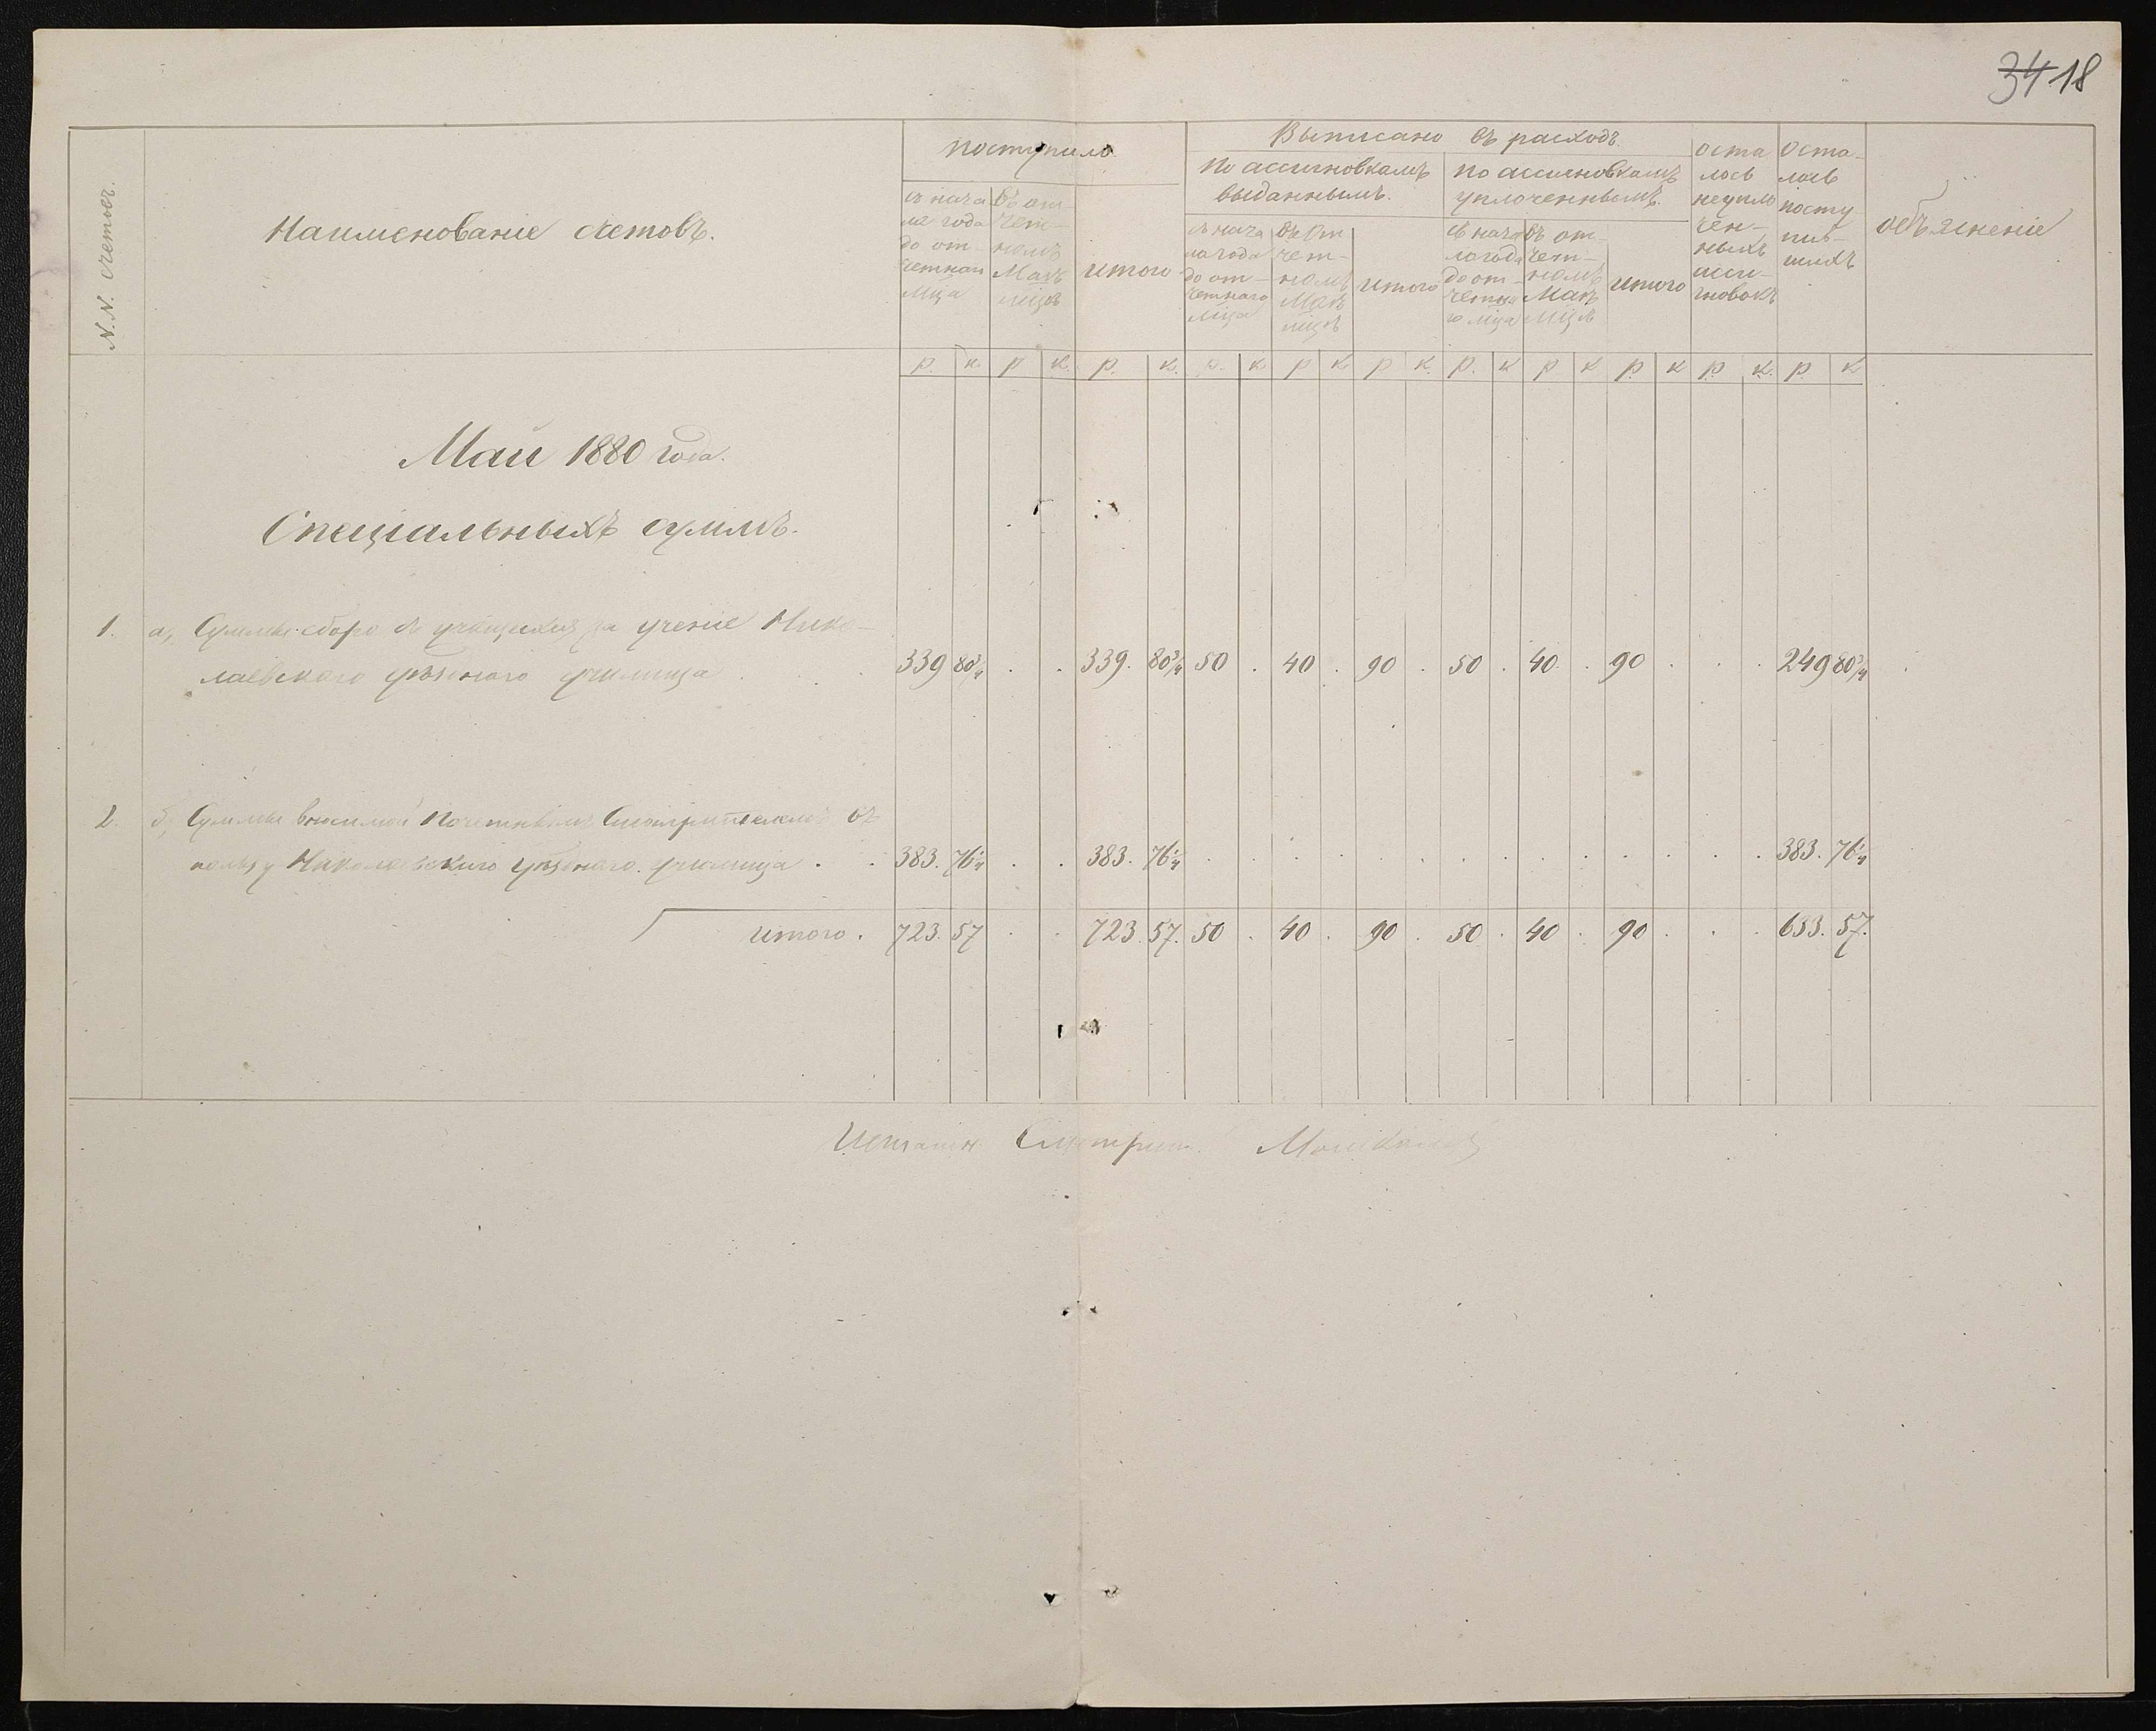 34 18
N.N. счетовъ.
Наименованіе счетовъ.
поступило
съ нача
ла года
до от-
четнаго
мѣца
Въ от-
чет-
номъ
Маѣ
мѣцѣ
итого
Выписано въ расходъ.
по ассигновкамъ
выданнымъ.
съ нача
ла года
до от-
четнаго
мѣца
Въ от
чет-
номъ
Маѣ
мѣцѣ
итого
по ассигновкамъ
уплоченнымъ.
съ нача
ла года
до от-
четна
го мѣца
Въ от-
чет-
номъ
Маѣ
мѣцѣ
итого
оста
лось
неупло
чен-
ныхъ
асси-
гновокъ
Оста-
лось
посту
пив-
шихъ
объясненіе
р. к. р к. р. к. р. к р к р к. р. к р к р к р к. р. к
Май 1880 года.
Спеціальныхъ суммъ.
1. а, Суммы сбора съ учащихся за ученіе Нико-
лаевского уѣзднаго училища 339 80¾ . . 339. 80¾ 50 . 40 . 90 . 50 . 40 . 90 . . . 249 80¾
2. б, Суммы вносимой Почетнымъ Смотрителемъ въ
пользу Николаевского уѣзднаго училища . . 383. 76¼ . . 383. 76¼ . . . . . . . . . . . . . . 383. 76¼
итого . 723. 57 . . 723. 57. 50 . 40 . 90 . 50 . 40 . 90 . . . 633. 57.
Штатн. Смотрит.